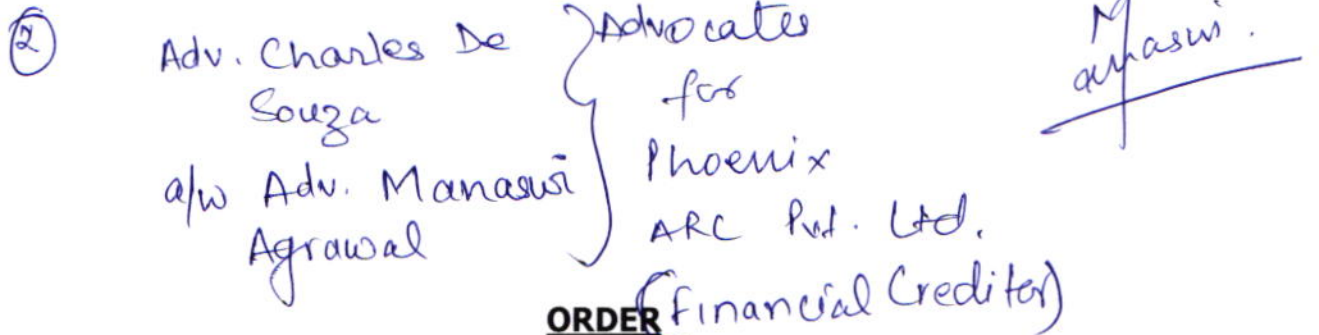 ②
Adv. Charles De
Souza
a/w Adv. Manaswi
Agrawal
Advocates
for
Phoenix
ARC Pvt. Ltd.
(Financial Creditor)
Manaswi.
ORDER